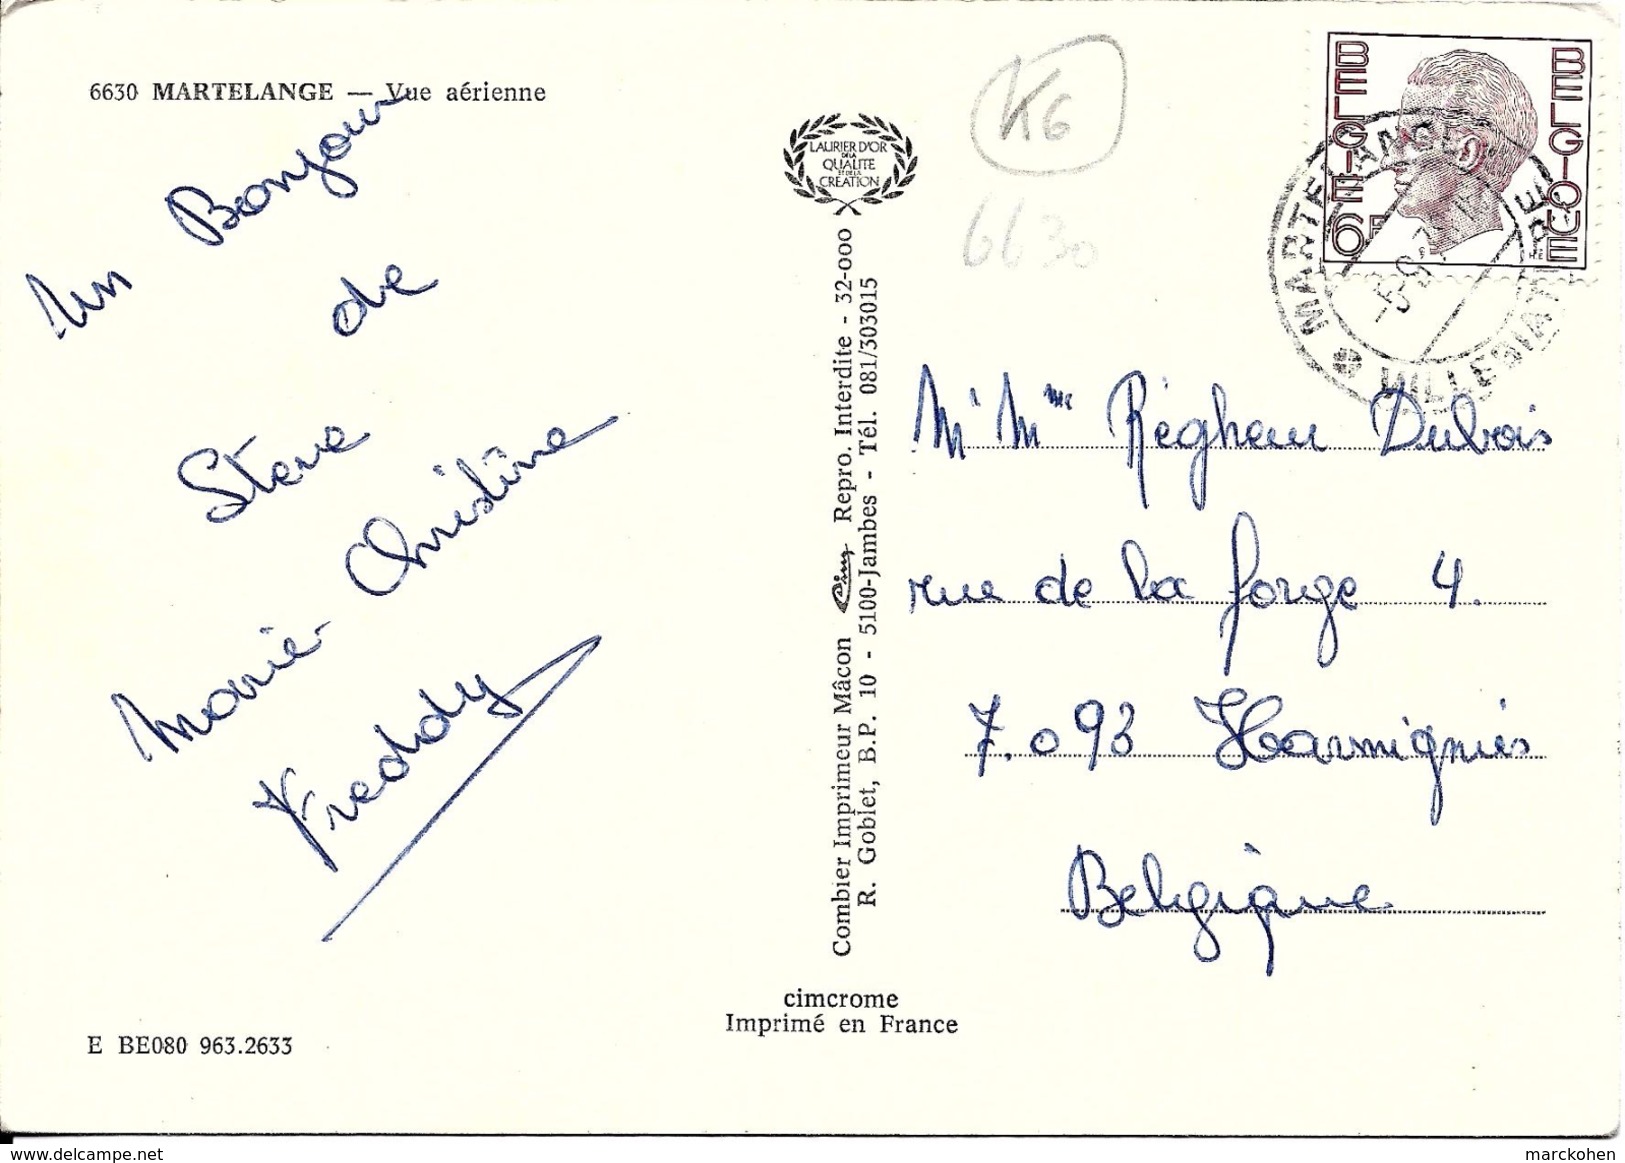 6630 MARTELANGE — Vue aérienne
Un Bonjour
de
Steve
Marie-Christine
Freddy
E BE080 963.2633
LAURIER D'OR
DE LA
QUALITE
ET DE LA
CREATION
Combier Imprimeur Mâcon Cim Repro. Interdite - 32-000
R. Gobiet, B.P. 10 - 5100-Jambes - Tél. 081/303015
cimcrome
Imprimé en France
K6
6630
BELGIE BELGIQUE
6F
MARTELANGE
Mr Mme Régheur Dubois
rue de la forge 4.
7.093 Harmignies
Belgique
delcampe.net
marckohen